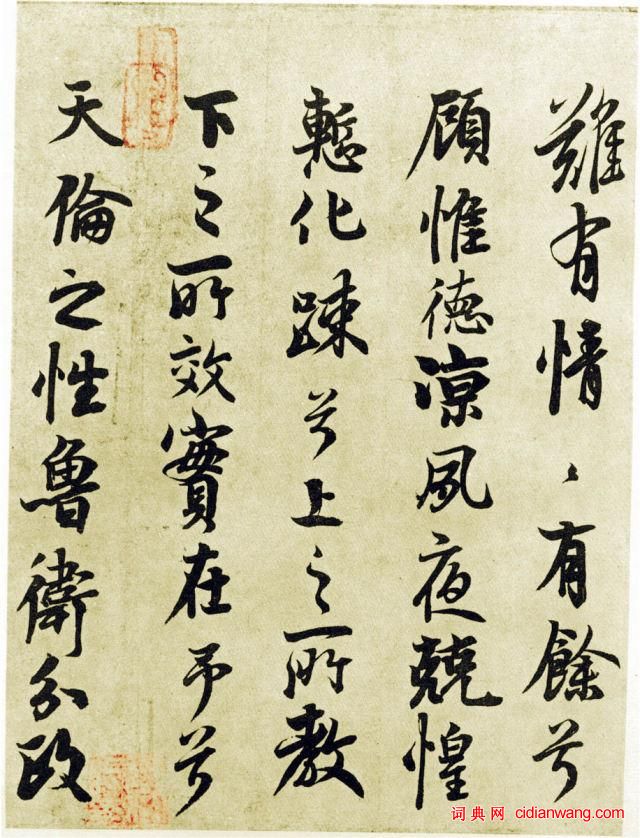 難有情〻有餘兮
顧惟德涼夙夜兢惶
慙化踈兮上之所教
下之所效實在予兮
天倫之性魯衛分政
词典网 cidianwang.com